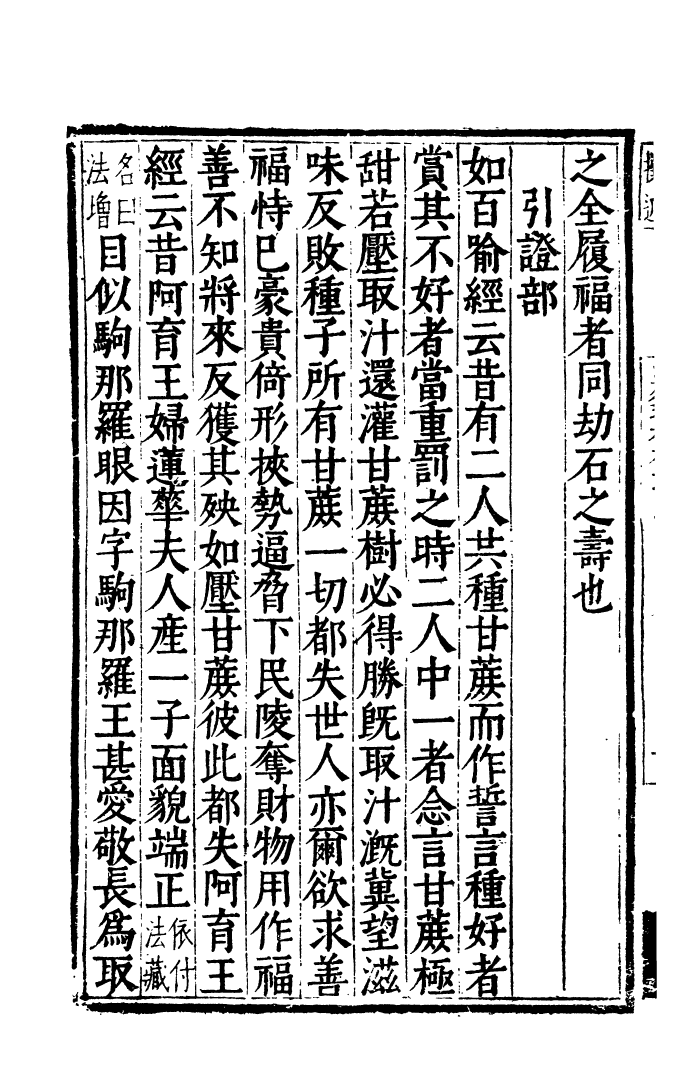 之全履福者同劫石之壽也
引證部
如百喻經云昔有二人共種甘蔗而作誓言種好者
賞其不好者當重罰之時二人中一者念言甘蔗極
甜若壓取汁還灌甘蔗樹必得勝既取汁溉冀望滋
味反敗種子所有甘蔗一切都失世人亦爾欲求善
福恃已豪貴倚形挾勢逼脅下民陵奪財物用作福
善不知將來反獲其殃如壓甘蔗彼此都失阿育王
經云昔阿育王婦蓮華夫人產一子面貌端正依付法藏
名曰法增目似駒那羅眼因字駒那羅王甚愛敬長爲取